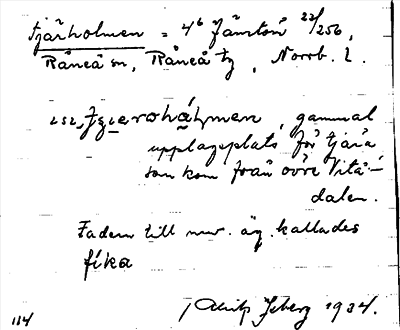 Tjärholmen = 4⁶ Jämtön 22/256,
Råneå sn, Råneå tg, Norrb. l.
gammal
upplagsplats för tjära
som kom från övre Vitå-
dalen.
Fadern till nuv. äg. kallades
fika
1934.
114